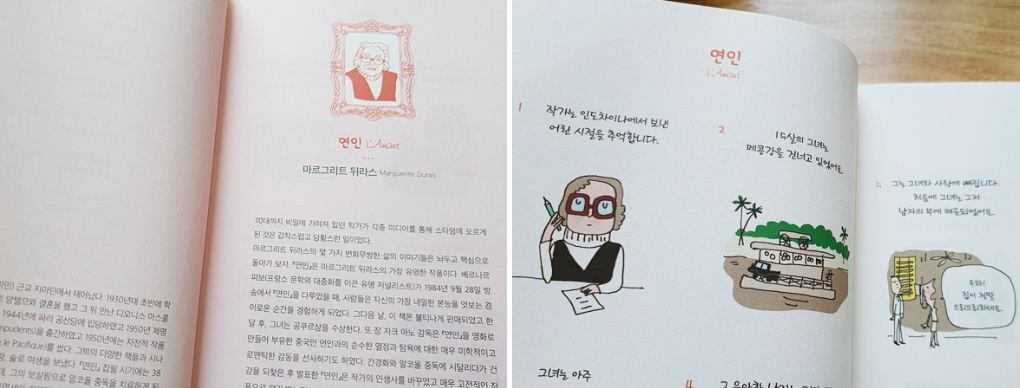 연인 L'Amant
마르그리트 뒤라스 Marguerite Duras
70대까지 비밀에 가려져 있던 작가가 각종 미디어를 통해 스타덤에 오르게
된 것은 갑작스럽고 당황스런 일이었다.
마르그리트 뒤라스의 몇 가지 변화무쌍한 삶의 이야기들은 놔두고 핵심으로
돌아가 보자. 『연인』은 마르그리트 뒤라스의 가장 유명한 작품이다. 베르나르
피보(프랑스 문학의 대중화를 이끈 유명 저널리스트)가 1984년 9월 28일 방
송에서 『연인』을 다루었을 때, 사람들은 자신의 가장 내밀한 본능을 엿보는 경
이로운 순간을 경험하게 되었다. 그다음 날, 이 책은 불티나게 판매되었고 한
달 후, 그녀는 공쿠르상을 수상한다. 또 장 자크 아노 감독은 『연인』을 영화로
만들어 부유한 중국인 연인과의 순수한 열정과 탐욕에 대한 매우 미학적이고
로맨틱한 감동을 선사하기도 하였다. 간경화와 알코올 중독에 시달리다가 건
강을 되찾은 후 발표한 『연인』은 작가의 인생사를 바꾸었고 매우 고전적인 작
근교 지아딘에서 태어났다. 1930년대 초반에 학
앙텔므와 결혼을 했고 그 뒤 만난 디오니스 마스콜
1944년에 파리 공산당에 입당하였고 1950년 제명
mpudents)을 출간하였고 1950년에는 자전적 작품
e le Pacifique)를 썼다. 그밖의 다양한 책들과 시나
술로 여생을 보냈다. 『연인』 집필 시기에는 38
다. 그의 보살핌으로 알코올 중독을 치료하게 된
연인
L'Amant
1
작가는 인도차이나에서 보낸
어린 시절을 추억합니다.
2
15살의 그녀는
메콩강을 건너고 있었어요.
그녀는 아주
4
그는 그녀와 사랑에 빠집니다.
처음에 그녀는 그저
남자의 부에 매료되었어요.
우와!
집이 정말
으리으리하네요.